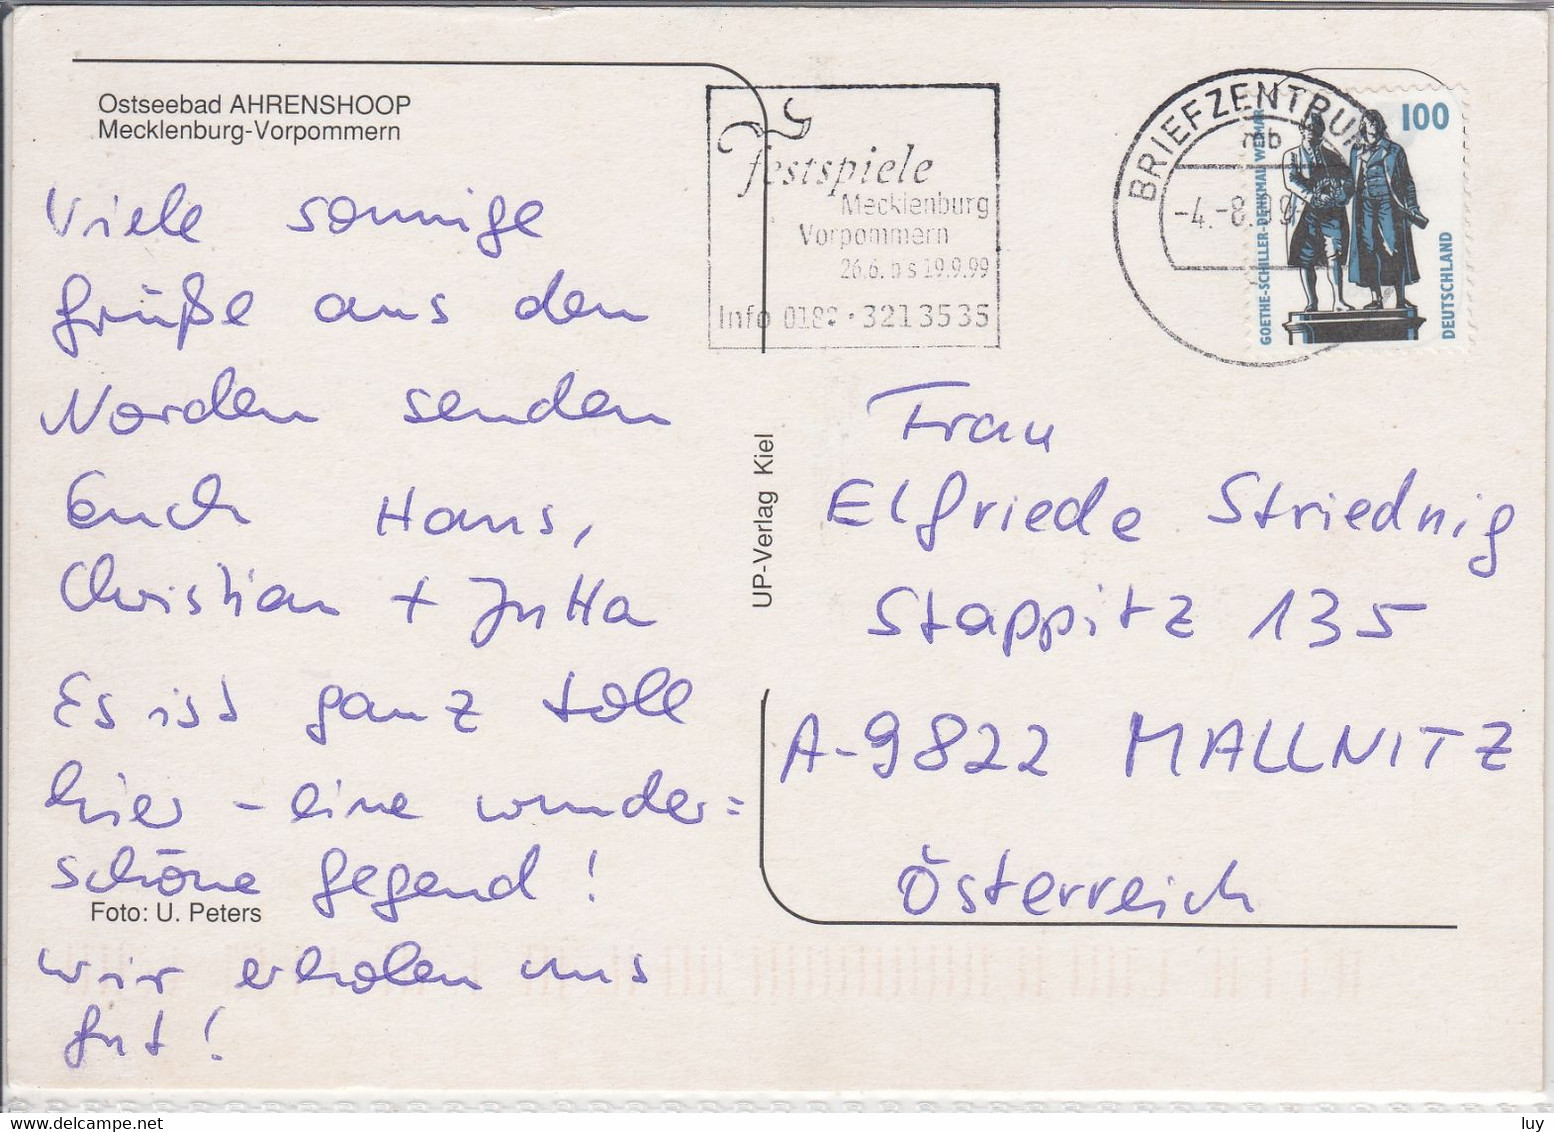 Ostseebad AHRENSHOOP
Mecklenburg-Vorpommern
Viele sonnige
Grüße aus dem
Norden senden
Euch Hans,
Christian + Jutta
Es ist ganz toll
hier - eine wunder=
schöne Gegend!
Foto: U. Peters
Wir erholen uns
gut!
UP-Verlag Kiel
Festspiele
Mecklenburg
Vorpommern
26.6. bis 19.9.99
Info 3213535
BRIEFZENTRUM
mb
-4.-8.
100
GOETHE-SCHILLER-DENKMAL WEIMAR
DEUTSCHLAND
Frau
Elfriede Striednig
Stappitz 135
A-9822 MALLNITZ
Österreich
www.delcampe.net
luy